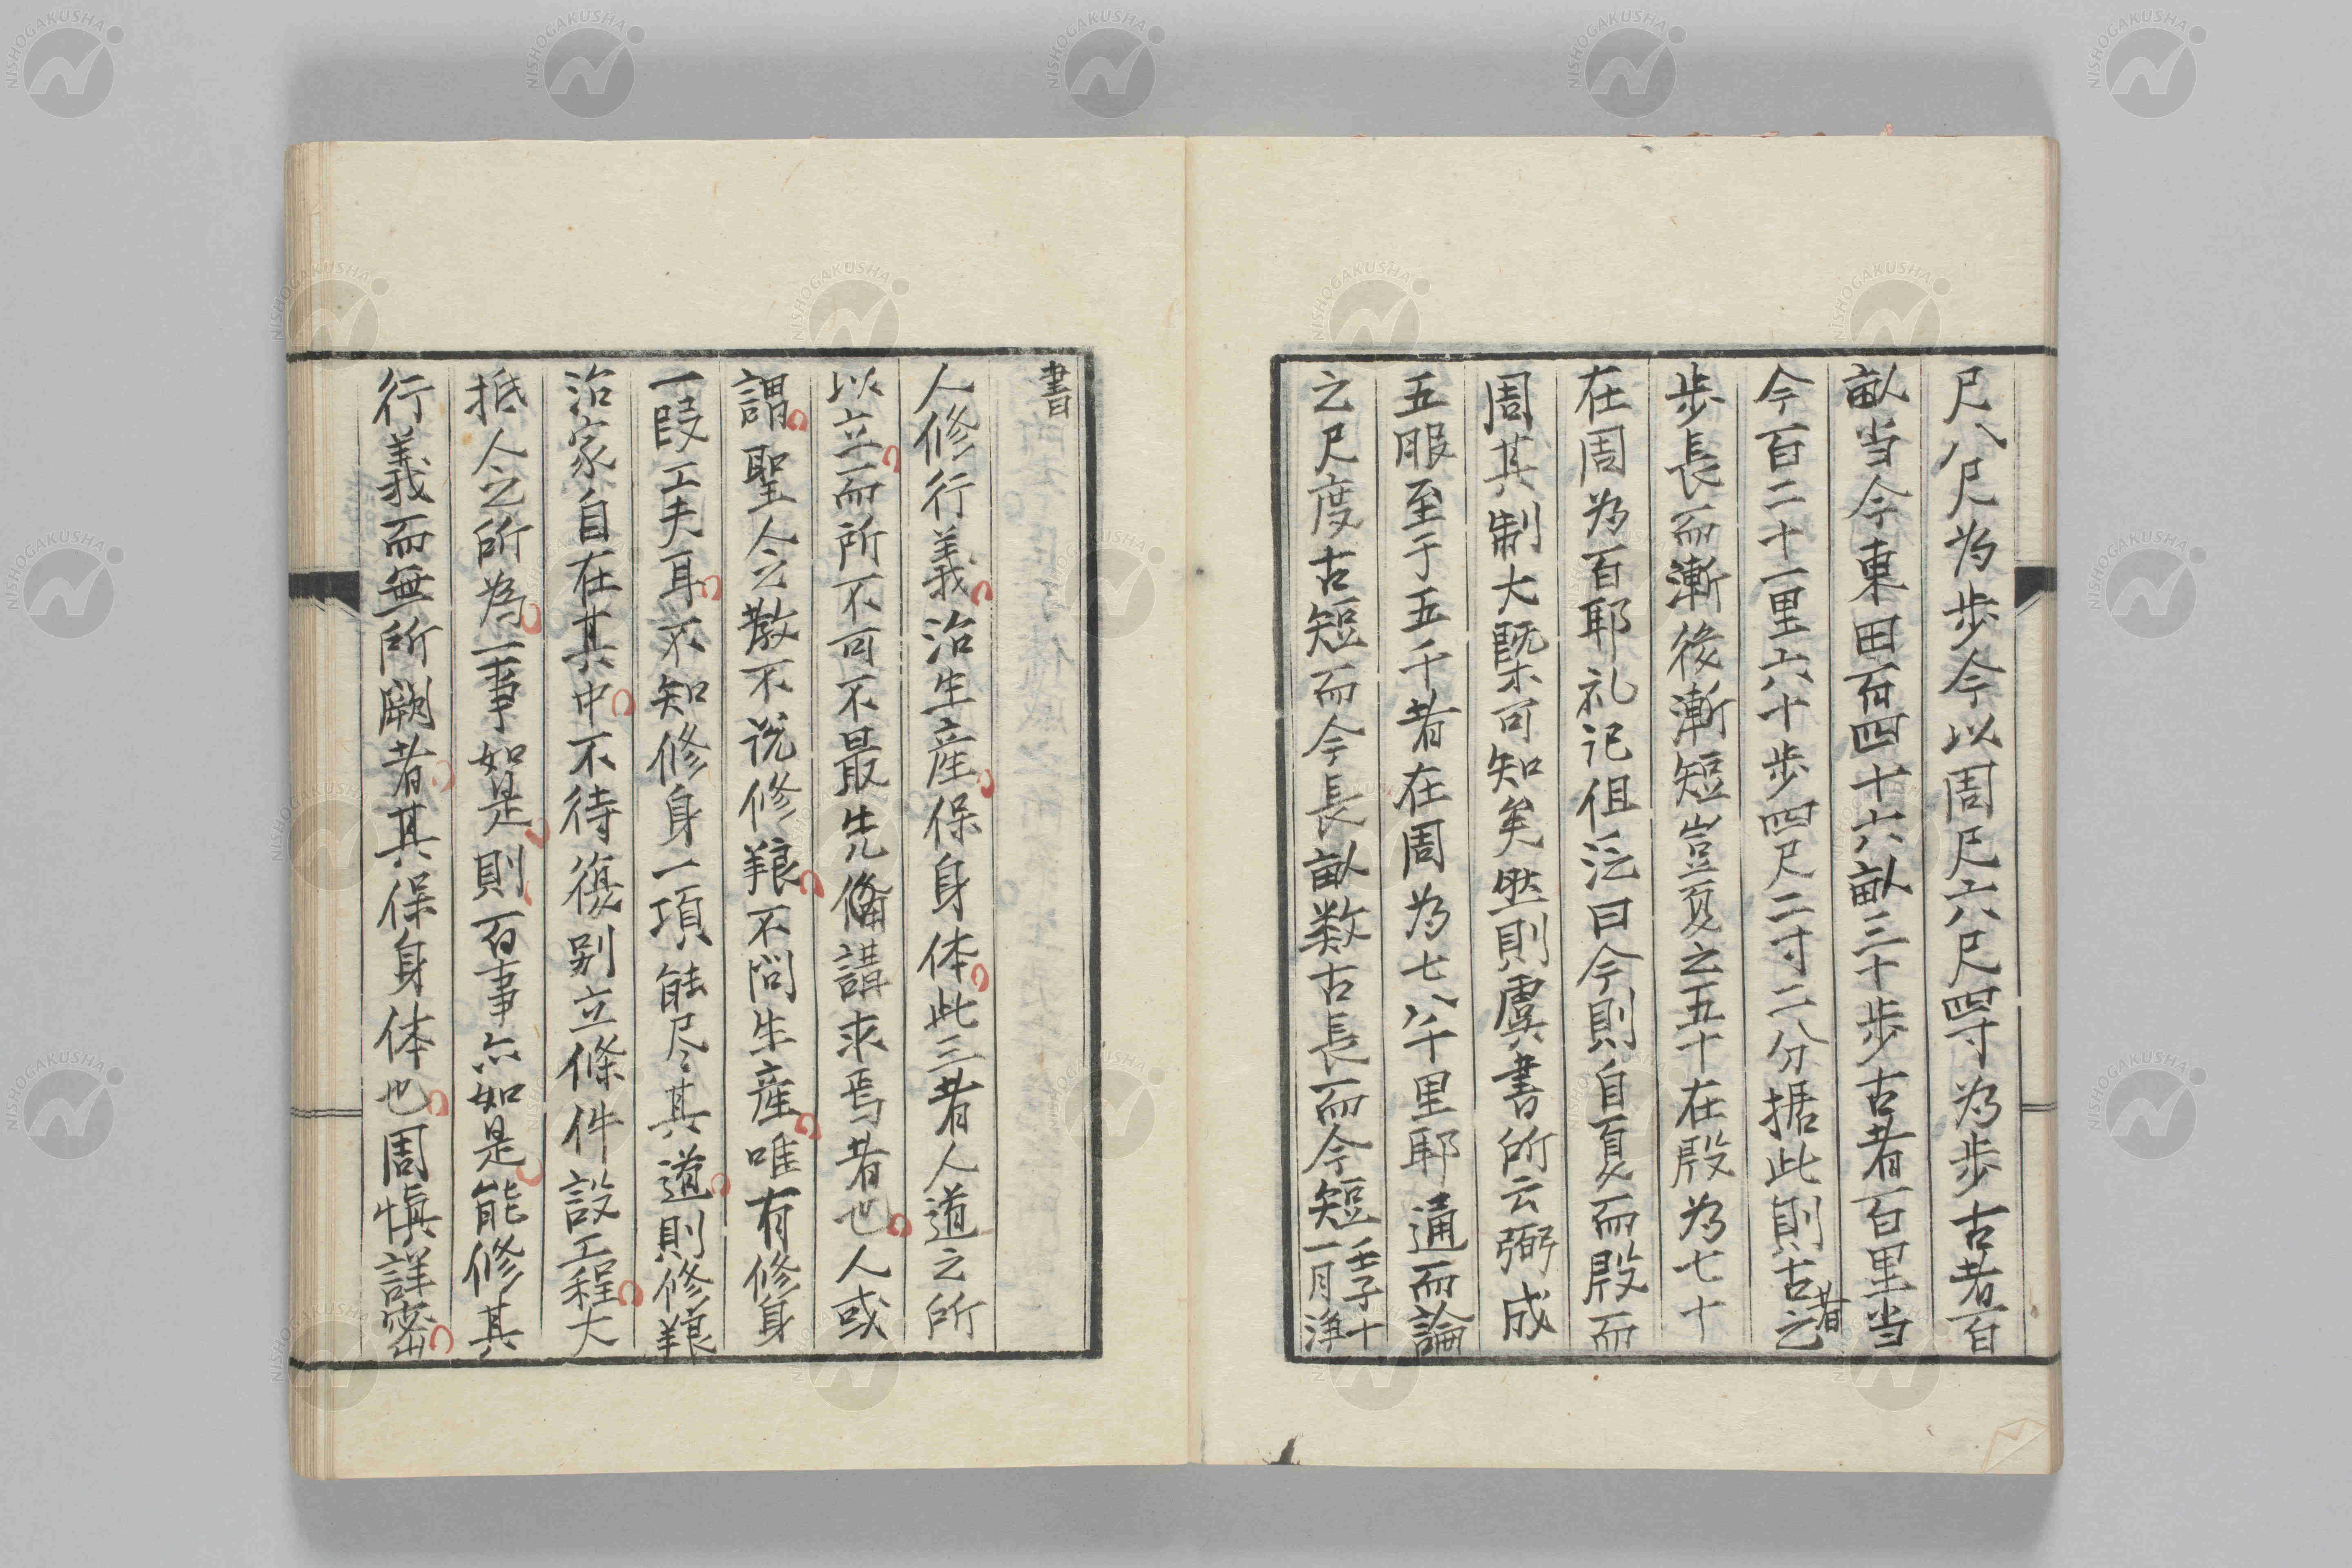 尺八尺為歩今以周尺六尺四寸為歩古者百
畝当今東田百四十六畝三十歩古者百里当
今百二十一里六十歩四尺二寸二分据此則古者之
歩長而漸後漸短豈夏之五十在殷為七十
在周為百耶礼記但泛曰今則自夏而殷而
周其制大槩可知矣然則虞書所云弼成
五服至于五千者在周為七八千里耶通而論
之尺度古短而今長畝数古長而今短壬子十
一月浄
書
人修行義治生産保身体此三者人道之所
以立而所不可不最先脩講求焉者也人或
謂聖人之教不説修羪不問生産唯有修身
一段工夫耳不知修身一項能尽其道則修羪
治家自在其中不待復别立條件設工程大
抵人之所為一事如是則百事亦如是能修其
行義而無所闕者其保身体也周慎詳密
NISHOGAKUSHA